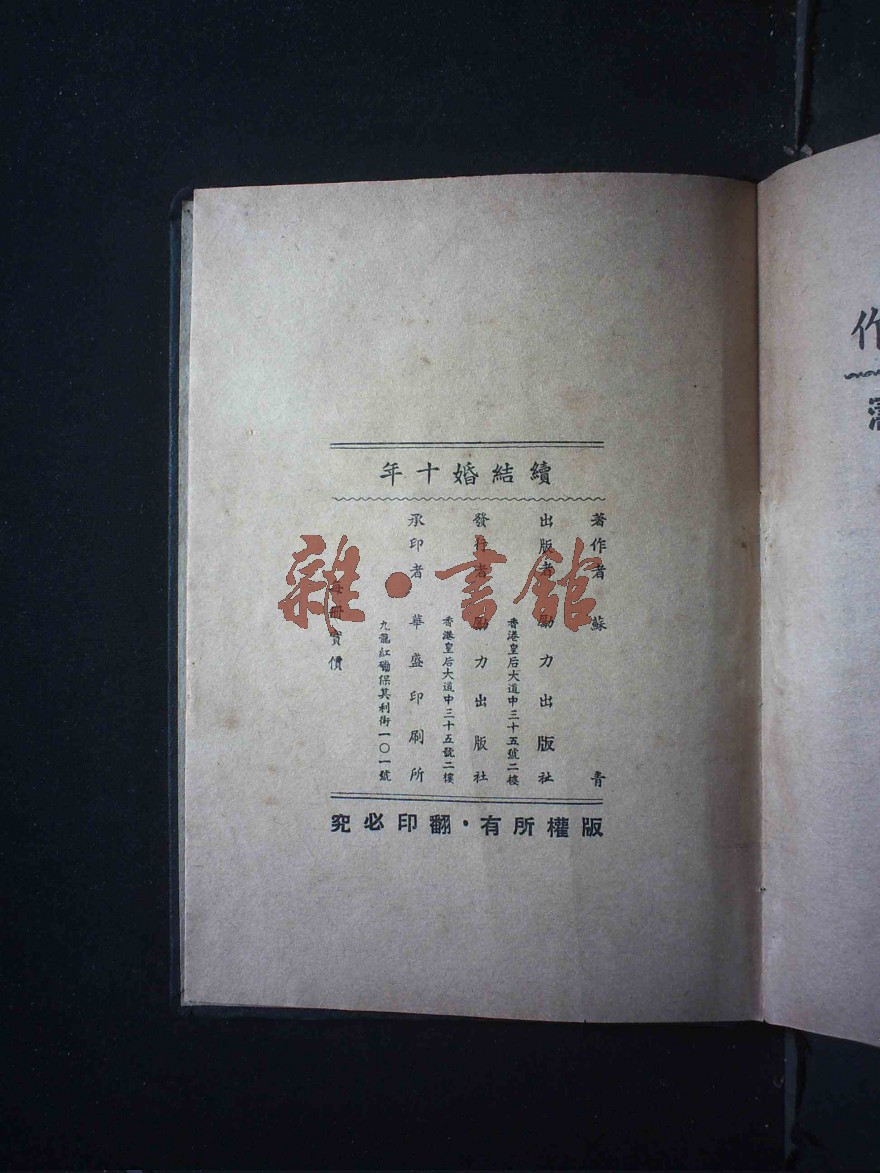 續結婚十年
著作者 蘇青
出版者 勵力出版社
香港皇后大道中三十五號二樓
發行者 勵力出版社
香港皇后大道中三十五號二樓
承印者 華盛印刷所
九龍紅磡保其利街一〇一號
每冊實價
版權所有・翻印必究
雜・書館
作